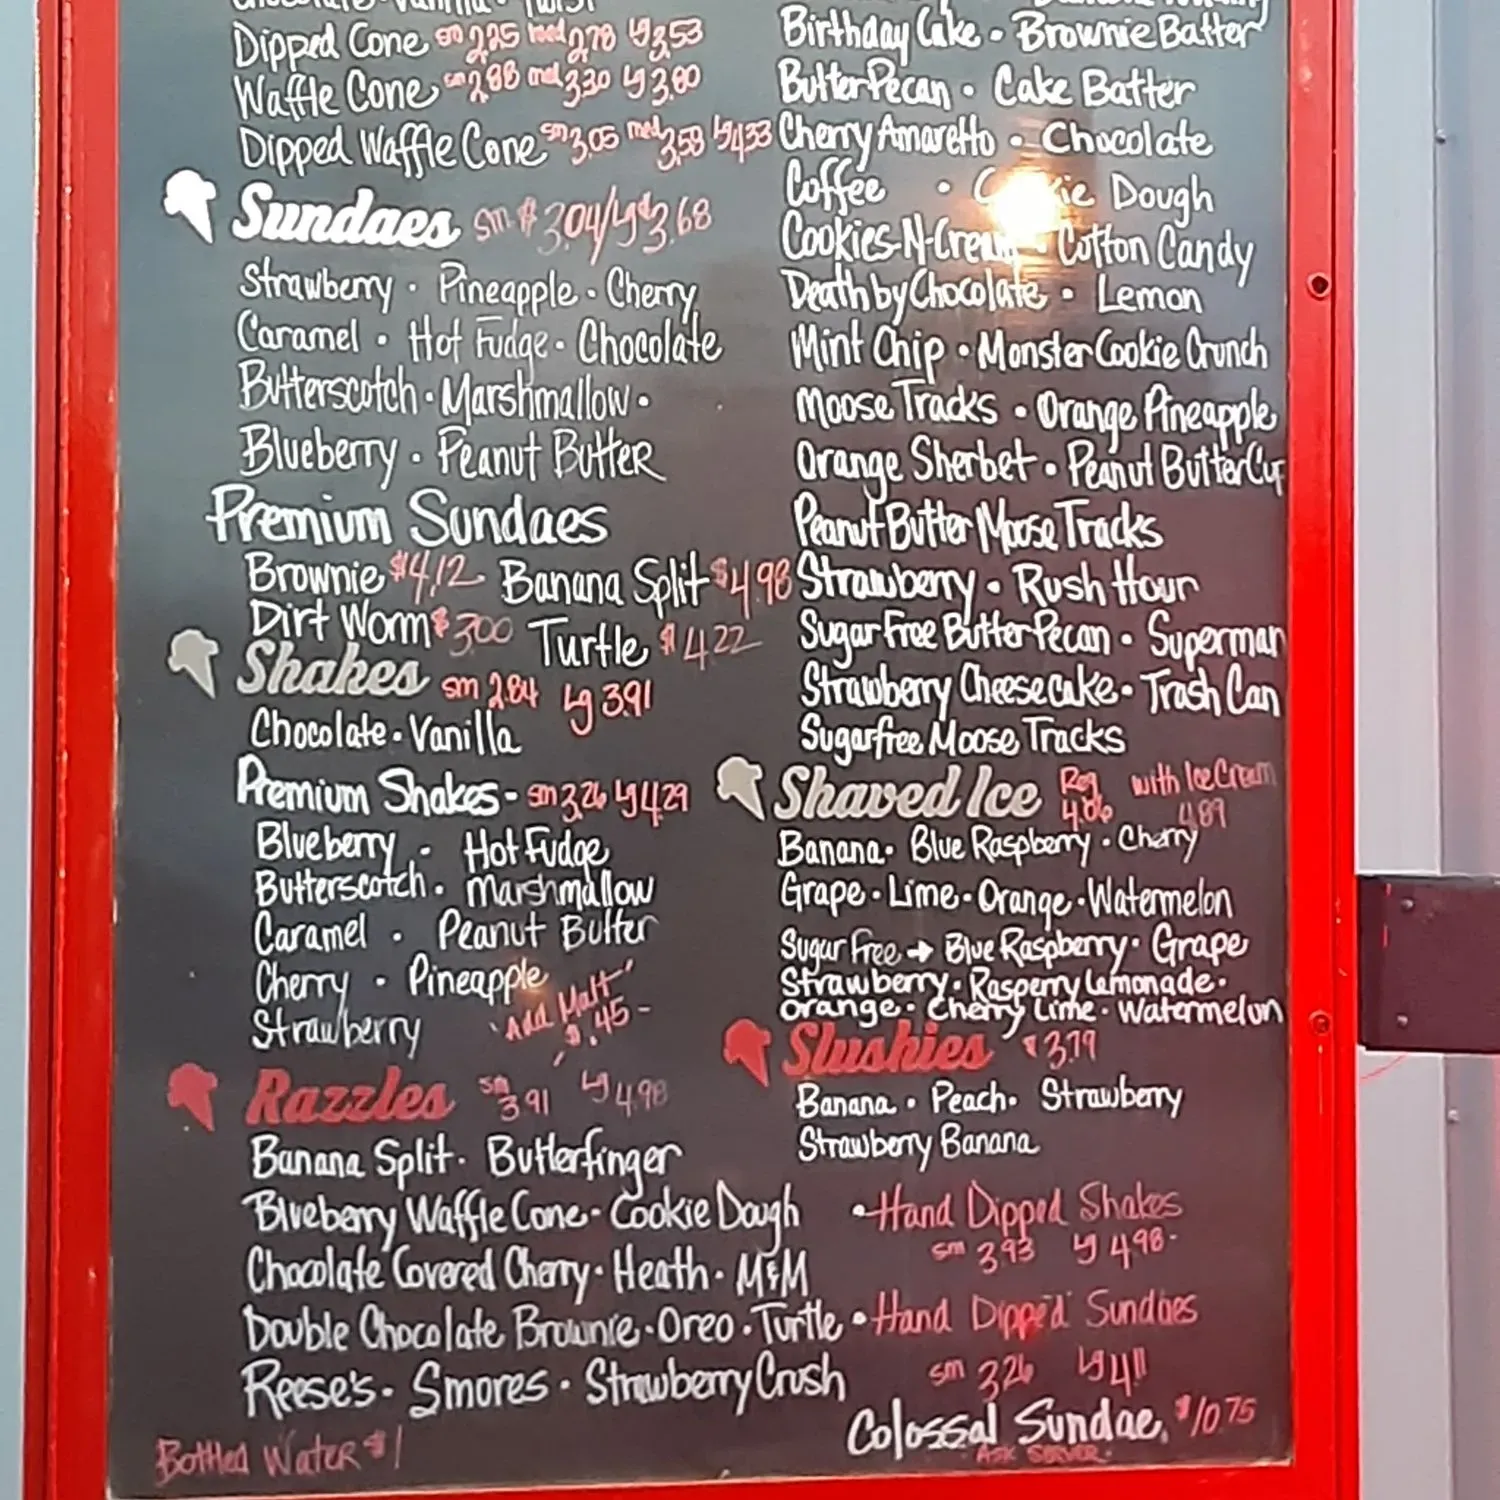 Chocolate · Vanilla · Twist
Dipped Cone sm 2.25 med 2.78 lg 3.53
Waffle Cone sm 2.88 med 3.30 lg 3.80
Dipped Waffle Cone sm 3.05 med 3.59 lg 4.33
Sundaes sm $3.04/lg $3.68
Strawberry · Pineapple · Cherry
Caramel · Hot Fudge · Chocolate
Butterscotch · Marshmallow ·
Blueberry · Peanut Butter
Premium Sundaes
Brownie $4.12 Banana Split $4.98
Dirt Worm $3.00 Turtle $4.22
Shakes sm 2.84 lg 3.91
Chocolate · Vanilla
Premium Shakes - sm 3.26 lg 4.29
Blueberry · Hot Fudge
Butterscotch · Marshmallow
Caramel · Peanut Butter
Cherry · Pineapple
Strawberry
"Add Malt"
$.45-
Razzles sm 3.91 lg 4.98
Banana Split · Butterfinger
Blueberry Waffle Cone · Cookie Dough
Chocolate Covered Cherry · Heath · M&M
Double Chocolate Brownie · Oreo · Turtle
Reese's · Smores · Strawberry Crush
Bottled Water $1
Birthday Cake · Brownie Batter
Butter Pecan · Cake Batter
Cherry Amaretto · Chocolate
Coffee · Cookie Dough
Cookies-N-Cream · Cotton Candy
Death by Chocolate · Lemon
Mint Chip · Monster Cookie Crunch
Moose Tracks · Orange Pineapple
Orange Sherbet · Peanut Butter Cup
Peanut Butter Moose Tracks
Strawberry · Rush Hour
Sugar Free Butter Pecan · Superman
Strawberry Cheesecake · Trash Can
Sugarfree Moose Tracks
Shaved Ice Reg 4.06 with Ice Cream 4.89
Banana · Blue Raspberry · Cherry
Grape · Lime · Orange · Watermelon
Sugar Free → Blue Raspberry · Grape
Strawberry · Rasperry Lemonade ·
Orange · Cherry Lime · Watermelon
Slushies $3.79
Banana · Peach · Strawberry
Strawberry Banana
• Hand Dipped Shakes
sm 3.93 lg 4.98-
• Hand Dipped Sundaes
sm 3.26 lg 4.11
Colossal Sundae $10.75
ASK SERVER.